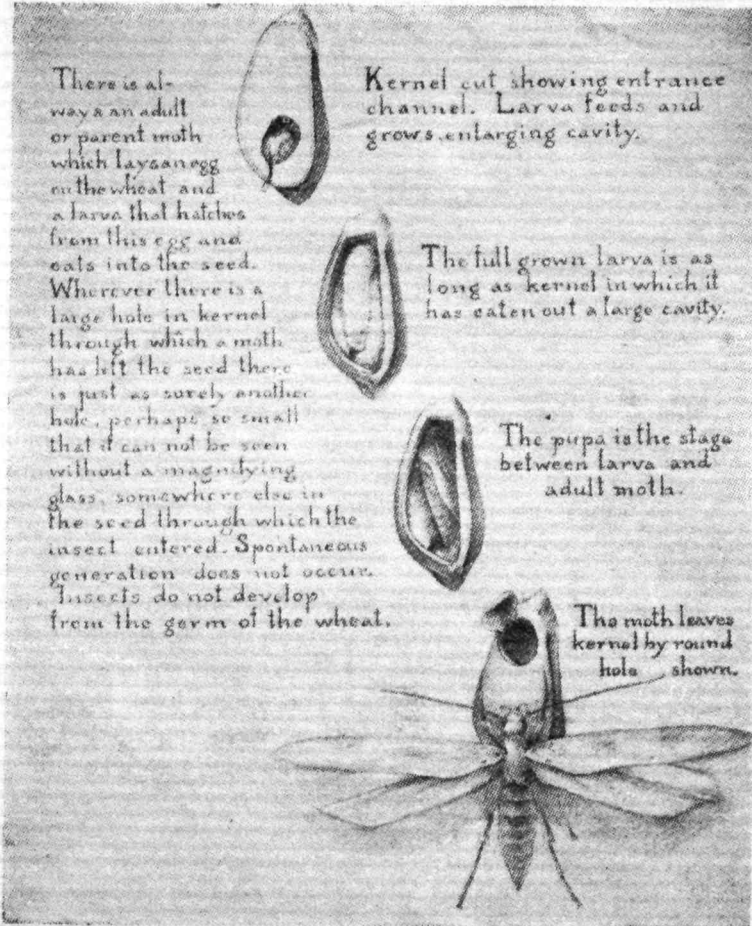 There is al-
ways an adult
or parent moth
which lays an egg
on the wheat and
a larva that hatches
from this egg and
eats into the seed.
Wherever there is a
large hole in kernel
through which a moth
has left the seed there
is just as surely another
hole, perhaps so small
that it can not be seen
without a magnifying
glass, somewhere else in
the seed through which the
insect entered. Spontaneous
generation does not occur.
Insects do not develop
from the germ of the wheat.
Kernel cut showing entrance
channel. Larva feeds and
grows, enlarging cavity.
The full grown larva is as
long as kernel in which it
has eaten out a large cavity.
The pupa is the stage
between larva and
adult moth.
The moth leaves
kernel by round
hole shown.